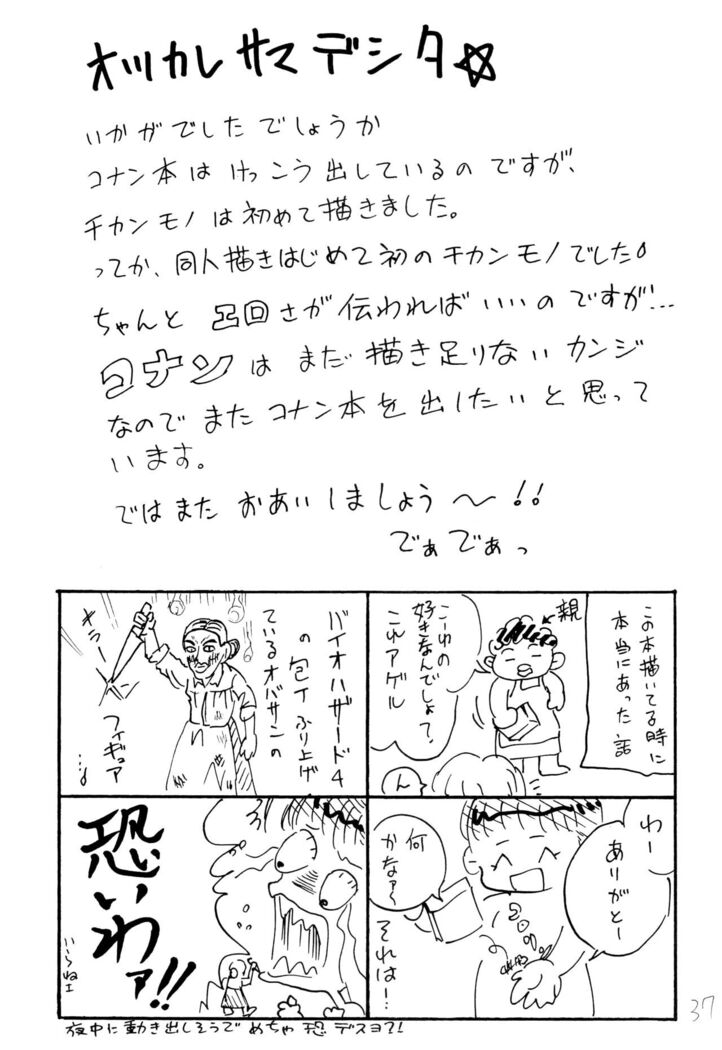 オツカレサマデシタ☆
いかがでしたでしょうか
コナン本はけっこう出しているのですが、
チカンモノは初めて描きました。
ってか、同人描きはじめて初のチカンモノでした
ちゃんと
さが伝わればいいのですが!…
コナンはまだ描き足りないカンジ
なのでまたコナン本を出したいと思って
います。
ではまたおあいしましょう〜!!
でぁでぁっ
この本描いてる時に
本当にあった話
親
こわの
好きなんでしょ?
これアゲル
ん
バイオハザード4
の包丁ふり上げ
ているオバサンの
フィギュア
…。
キラー
わー
ありがとー
何
かなァ〜
それは!…
恐いわァ!!
いらねェ
夜中に動き出しそうでめちゃ恐デスヨ?!
37